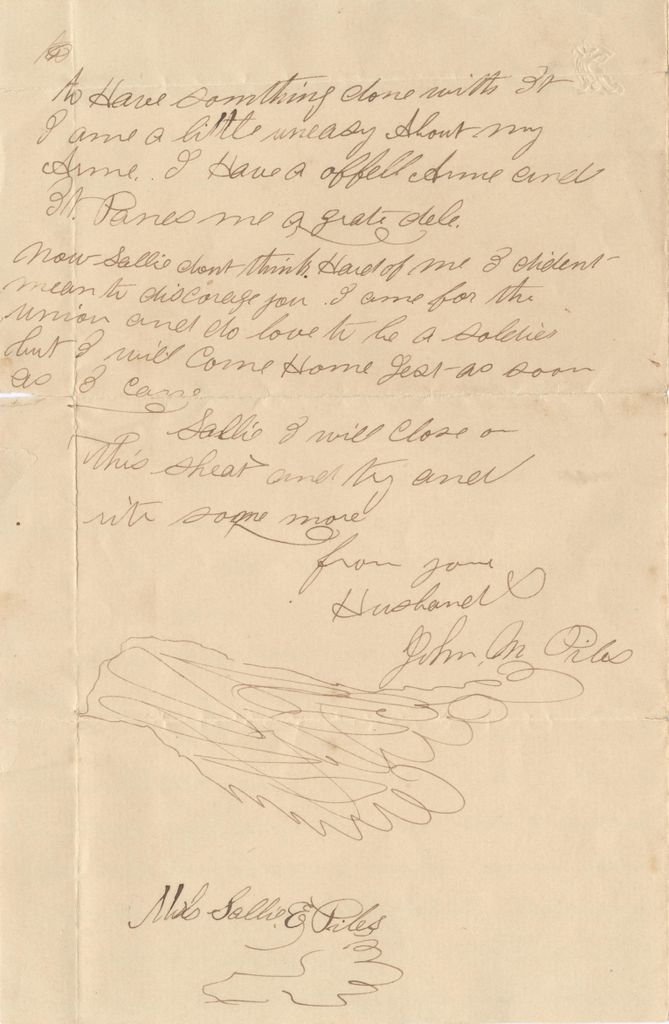 to
to Have somthing done with 3t
I ame a little uneasy About my
Arme. I Have a offell Arme and
3t. Panes me a grate dele.
Now Sallie dont think Hard of me 3 dident
mean to discorage you. I ame for the
union and do love to be a soldier
but I will Come Home Jest as soon
as 3 Cane
Sallie I will Close on
this sheat and try and
rite some more
from your
Husband
John. M Piles
Mrs Sallie. E Piles